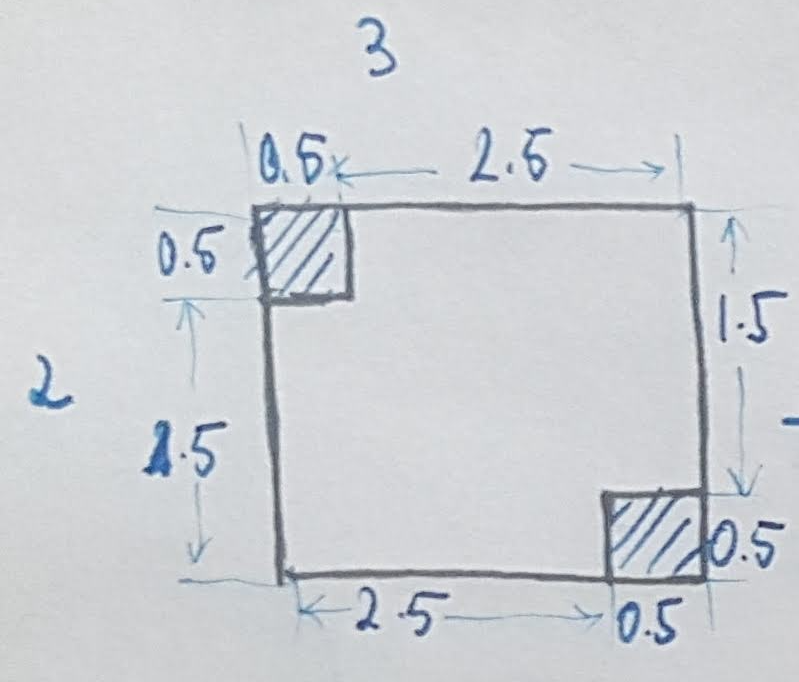 3
0.5 2.5
0.5
1.5
2
1.5
0.5
2.5 0.5